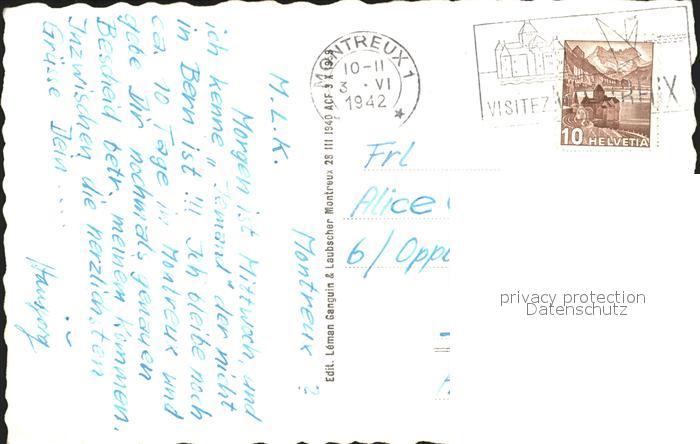 Montreux 2
M. L. K.
Morgen ist Mittwoch, und
ich kenne "Jemand" der nicht
in Bern ist !!! Ich bleibe noch
ca. 10 Tage in Montreux und
gebe Dir nochmals genauen
Bescheid betr. meinem Kommen.
Inzwischen die herzlichsten
Grüsse Dein ....
Edit. Léman Ganguin & Laubscher Montreux 28 III 1940 ACF 3 X 1939
MONTREUX 1
10-11
3. VI
1942
VISITEZ MONTREUX
10 HELVETIA
Frl
Alice
6/Oppl
privacy protection
Datenschutz